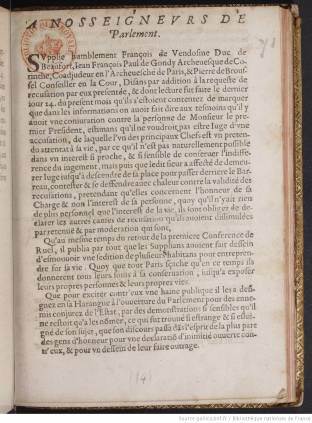 A NOSSEIGNEVRS DE
Parlement.
SVpplie humblement François de Vendosme Duc de
Beaufort, Iean François Paul de Gondy Archeuesque de Co-
rinthe, Coadjudeur en l'Archeuesché de Paris, & Pierre de Brous-
sel Conseiller en la Cour, Disans par addition à la requeste de
recusation par eux presentée, & dont lecture fut faire le dernier
iour 24. du present mois qu'ils s'estoient contentez de marquer
que dans les informations on auoit fait dire aux tésmoins qu'il y
auoit vne conjuration contre la personne de Monsieur le pre-
mier President, estimans qu'il ne voudroit pas estre Iuge d'vne
accusation, de laquelle l'vn des principaux Chefs est vn preten-
du attentat à sa vie, par ce qu'il n'est pas naturellement possible
dans vn interest si proche, & si sensible de conseruer l'indiffe-
rence du iugement, mais puis que ledit sieur a affecté de demeu-
rer Iuge iusqu'à descendre de sa place pour passer derriere le Bar-
reau, contester & se deffendre auec chaleur contre la validité des
recusations, pretendant qu'elles concernent l'honneur de sa
Charge & non l'interest de sa personne, quoy qu'il n'y ait rien
de plus personnel que l'interest de la vie, ils sont obligez de de-
clarer les autres causes de recusation qu'ils auoient dissimulées
par retenuë & par moderation qui sont,
Qu'au mesme temps du retour de la premiere Conference de
Ruel, il publia par tout que les Supplians auoient fait dessein
d'esmouuoir vne sedition de plusieurs habitans pour entrepren-
dre sur sa vie. Quoy que tout Paris sçache qu'en ce temps ils
donnerent tous leurs soins à sa conseruation, iusqu'à exposer
leurs propres personnes & leurs propres vies.
Que pour exciter contr'eux vne haine publique il les a desi-
gnez en sa Harangue à l'ouuerture du Parlement pour des enne-
mis conjurez de l'Estat, par des demonstrations si sensibles qu'il
ne restoit qu'à les nómer, ce qui fut trouué si estrange & si esloi-
gné de son sujet, que son discours passa dãs l'esprit de la plus part
des gens d'honneur pour vne declaratiõ d'inimitié ouuerte con-
tr'eux, & pour vn dessein de leur faire outrage.
(14)
Source gallica.bnf.fr / Bibliothèque nationale de France